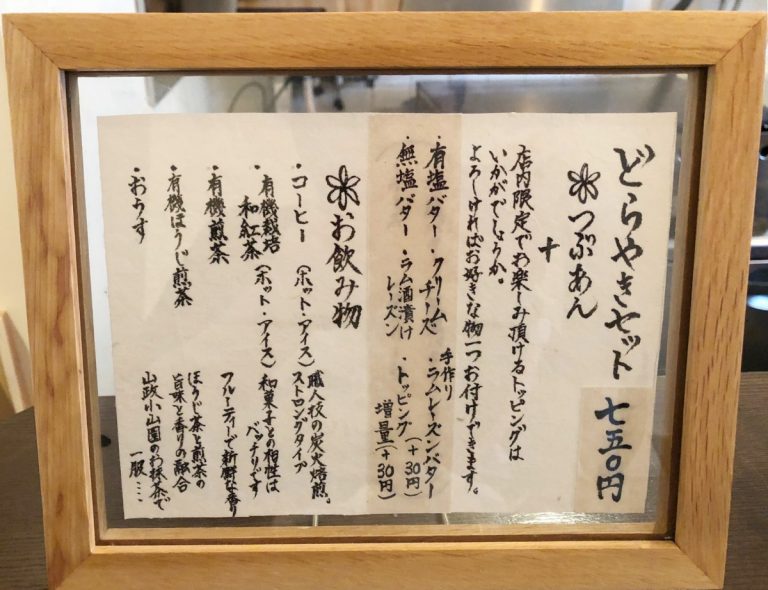 どらやきセット 七五〇円
つぶあん
+
店内限定でお楽しみ頂けるトッピングは
いかがでしょうか。
よろしければお好きな物一つお付けできます。
・有塩バター ・クリームチーズ ・手作りラムレーズンバター(+30円)
・無塩バター ・ラム酒漬けレーズン ・トッピング増量(+30円)
お飲み物
・コーヒー (ホット・アイス) 職人技の炭火焙煎。
ストロングタイプ
・有機栽培
和紅茶 (ホット・アイス) 和菓子との相性は
バッチリです
・有機煎茶 フルーティーで新鮮な香り
・有機ほうじ煎茶 ほうじ茶と煎茶の
旨味と香りの融合
・おうす 山政小山園のお抹茶で
一服‥‥